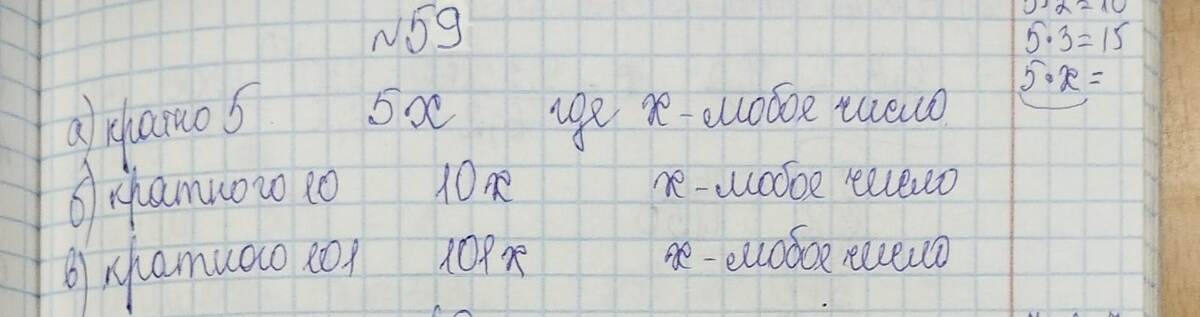 5·2=10
№59
5·3=15
5·x=
а) кратно 5 5x где x - любое число
б) кратного 10 10x x - любое число
в) кратного 101 101x x - любое число